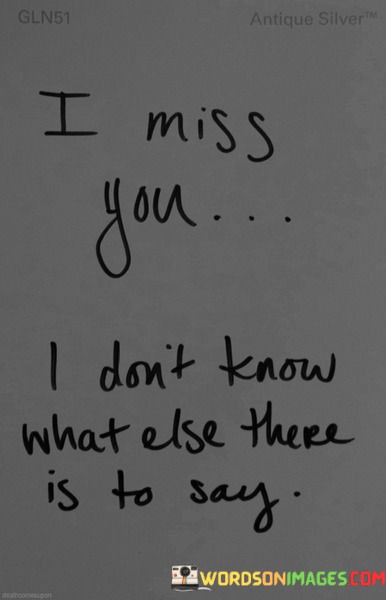 GLN51 Antique Silver™
I miss
you...
I don't know
what else there
is to say.
WORDSONIMAGES.COM